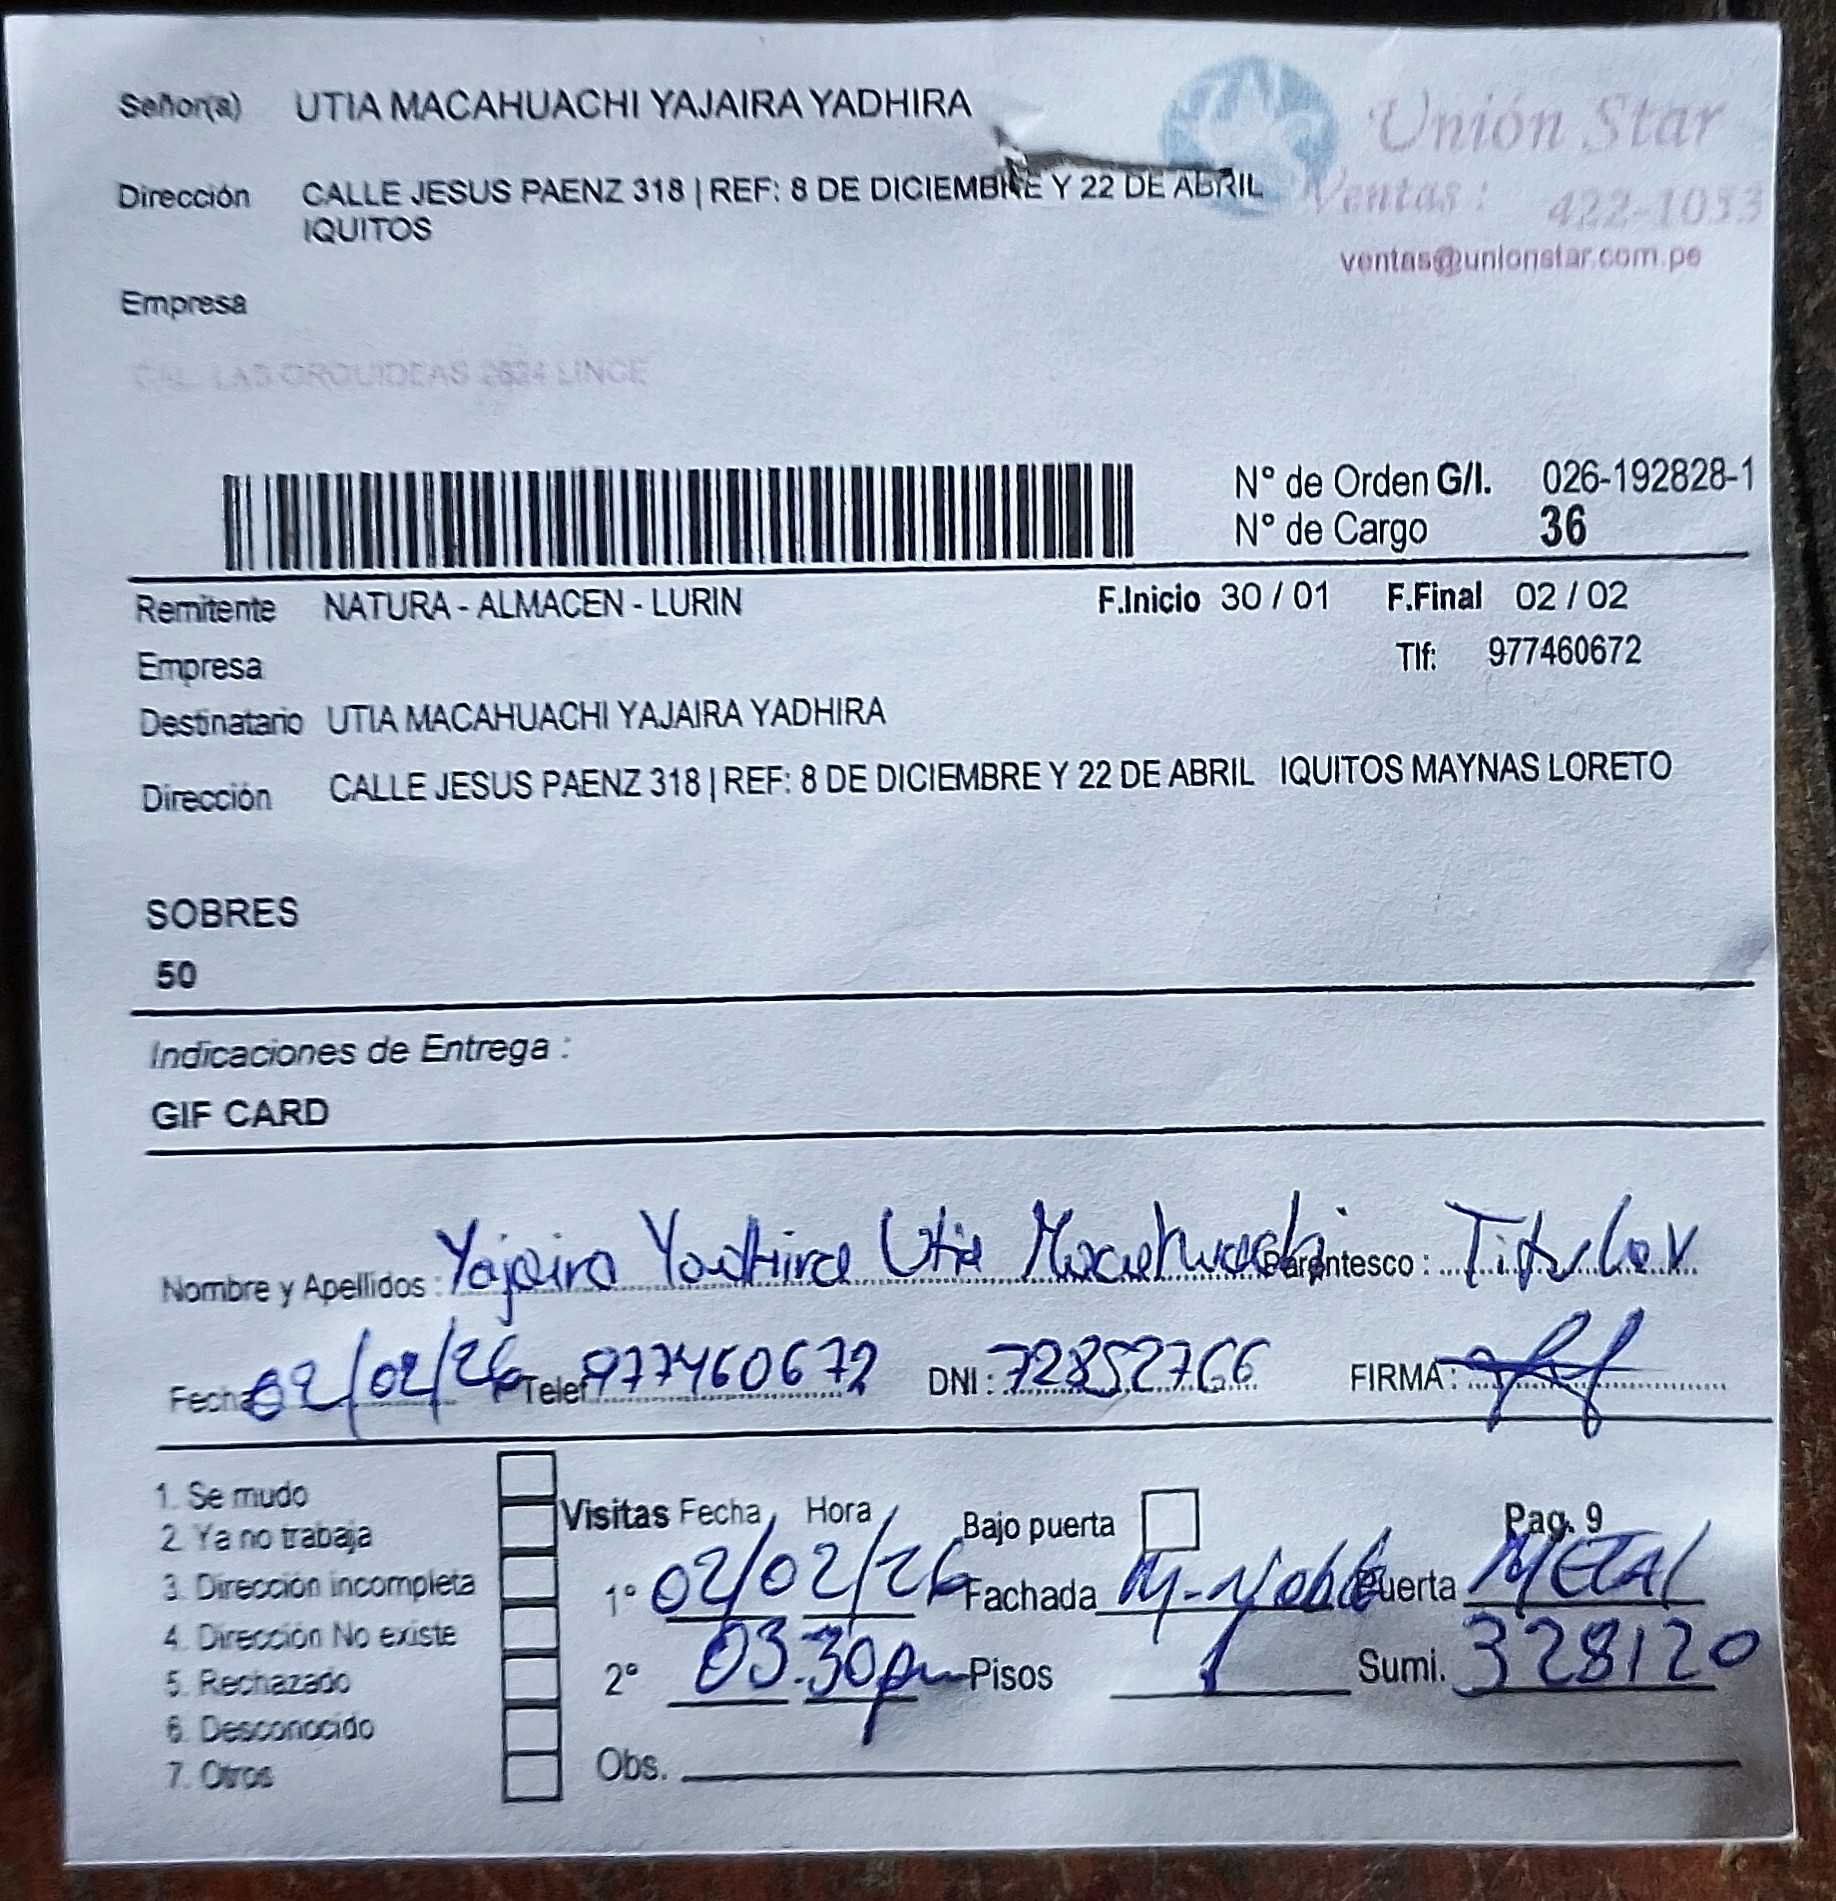 Señor(a) UTIA MACAHUACHI YAJAIRA YADHIRA
Unión Star
Dirección CALLE JESUS PAENZ 318 | REF: 8 DE DICIEMBRE Y 22 DE ABRIL
Ventas : 422-1053
IQUITOS
ventas@unionstar.com.pe
Empresa
CAL. LAS ORQUIDEAS 2634 LINCE
Nº de Orden G/I. 026-192828-1
Nº de Cargo 36
Remitente NATURA - ALMACEN - LURIN F.Inicio 30 / 01 F.Final 02 / 02
Empresa Tlf: 977460672
Destinatario UTIA MACAHUACHI YAJAIRA YADHIRA
Dirección CALLE JESUS PAENZ 318 | REF: 8 DE DICIEMBRE Y 22 DE ABRIL IQUITOS MAYNAS LORETO
SOBRES
50
Indicaciones de Entrega :
GIF CARD
Nombre y Apellidos : Yajaira Yadhira Utia Macahuachi Parentesco : Titular
Fecha 02/02/26 Telef 977460672 DNI : 72852766 FIRMA :
1. Se mudo
2. Ya no trabaja
3. Dirección incompleta
4. Dirección No existe
5. Rechazado
6. Desconocido
7. Otros
Visitas Fecha Hora Bajo puerta Pag. 9
1º 02/02/26 Fachada M-Noble Puerta METAL
2º 03:30pm Pisos 1 Sumi. 328120
Obs.